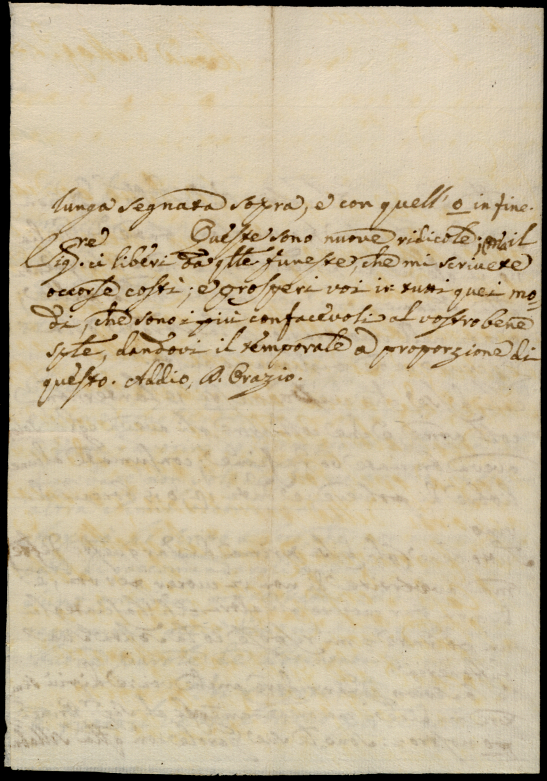 lunga segnata sopra, e con quell' o in fine.
Queste sono nuove ridicole; ma il
Sig.re ci liberi da q.lle funeste, che mi scrivete
occorse costì; e prosperi voi in tutti quei mo-
di, che sono i più confacevoli al vostro bene
sp.le, dandovi il temporale a proporzione di
questo. Addio, D. Orazio.